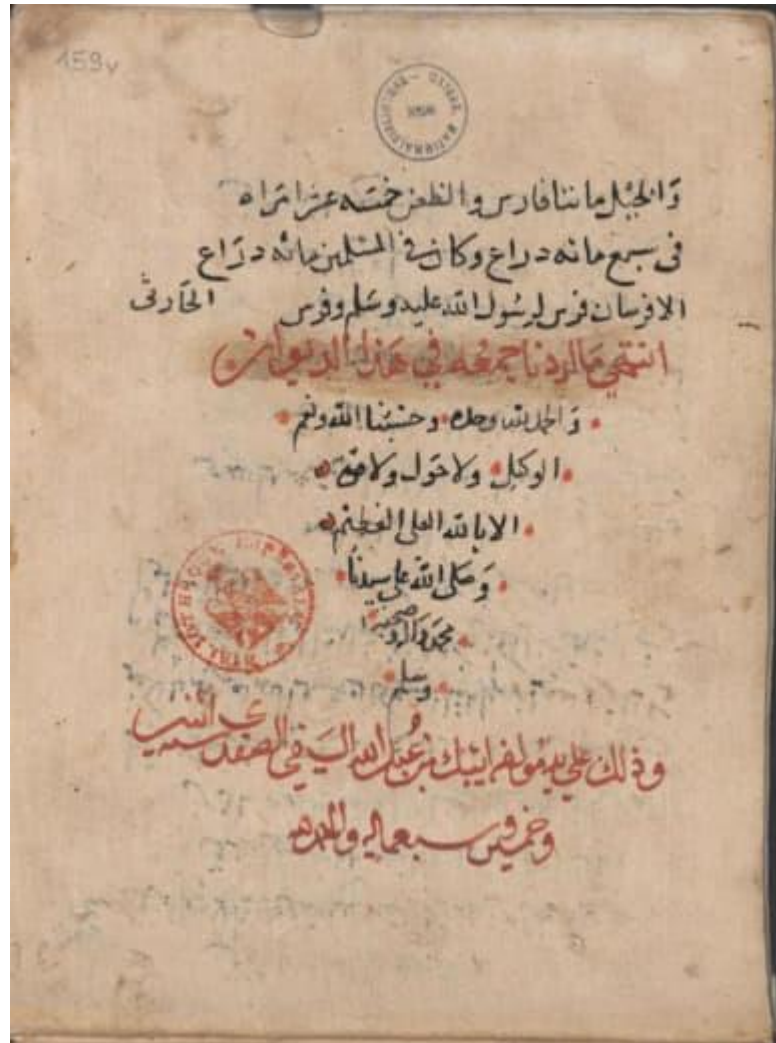 159v
والخيل مائتا فارس والظعن خمسه عشر امراه
فى سبع مائه دراع وكان فى المسلمين مائه دراع
الا فرسان فرس لرسول الله عليه وسلم وفرس الحارثى
انتهى ما اردنا جمعه في هذا الديوان
والحمد لله وحده وحسبنا الله ونعم
الوكيل ولا حول ولا قوه
الا بالله العلى العظيم
وصلى الله على سيدنا
محمد واله وصحبه
وسلم
وذلك على يد مولفه ايبك بن عبد الله الصفدى سنه
وخمسين سبعمايه والحمد لله